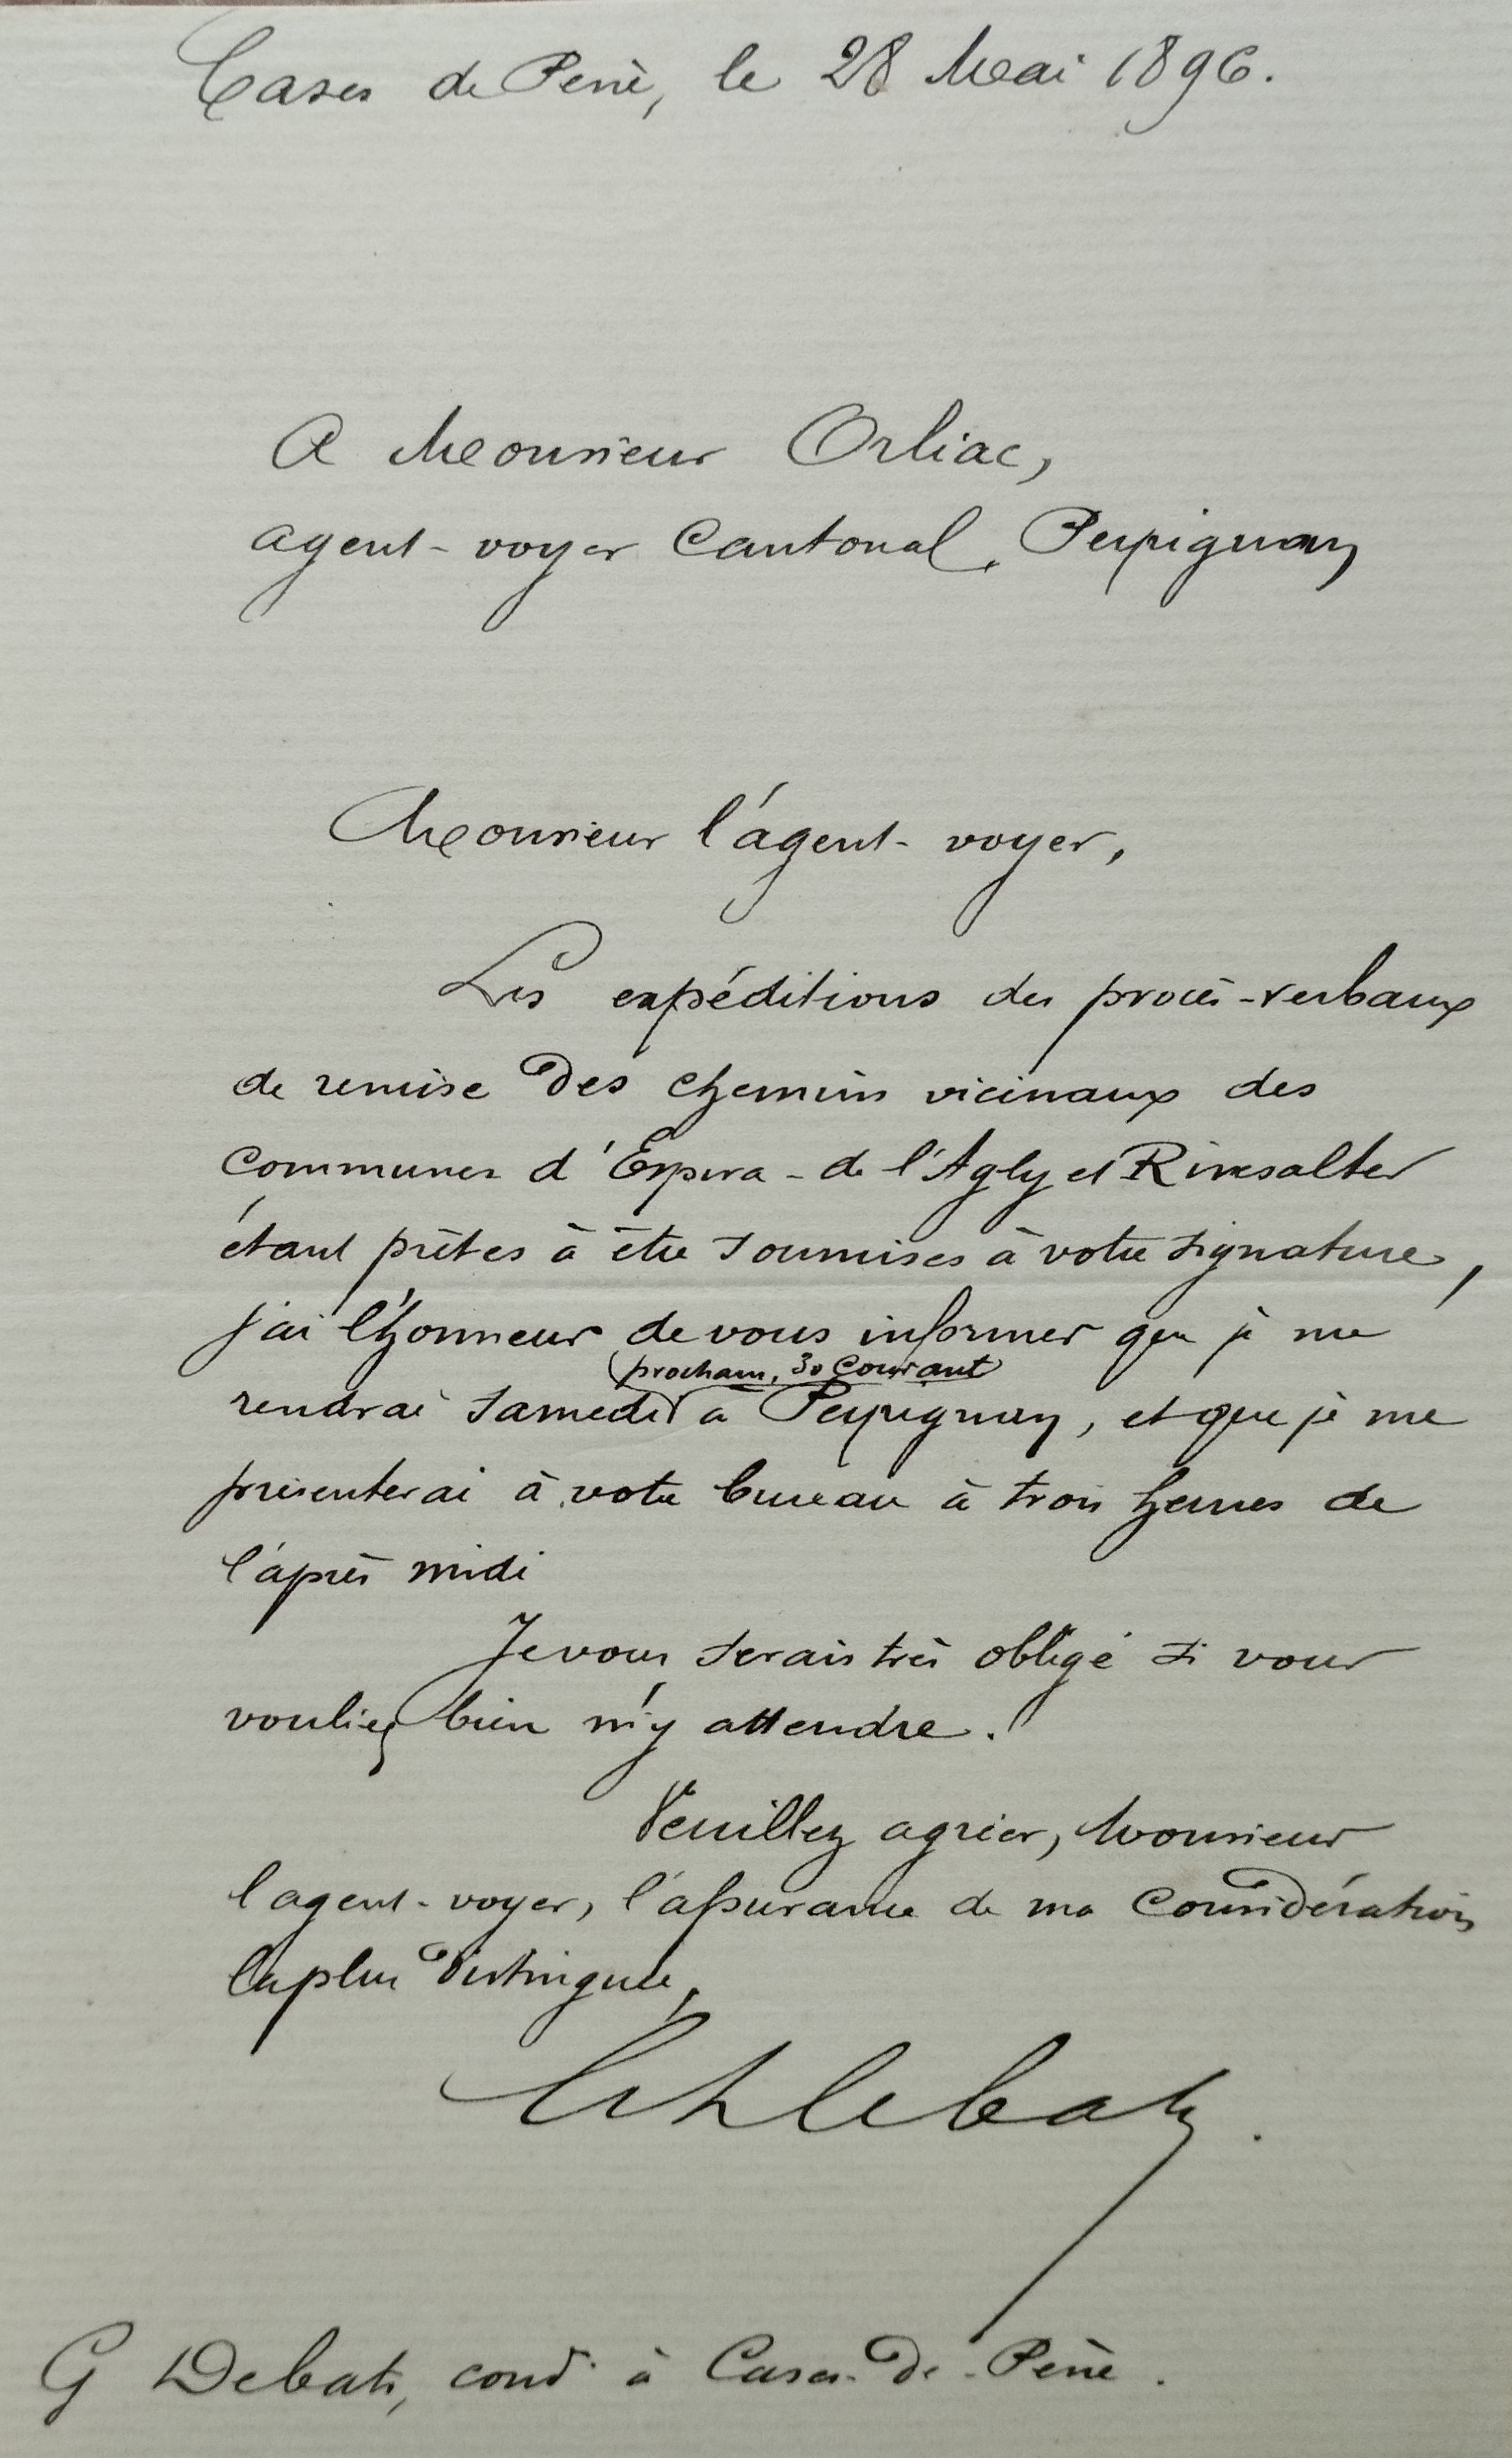 Cases de Pène, le 28 Mai 1896.
A Monsieur Orliac,
agent-voyer Cantonal, Perpignan
Monsieur l'agent-voyer,
Les expéditions des procès-verbaux
de remise des chemins vicinaux des
Communes d'Espira-de l'Agly et Rivesaltes
étant prêtes à être soumises à votre signature,
j'ai l'honneur de vous informer que je me
prochain, 30 Courant
rendrai samedi à Perpignan, et que je me
présenterai à votre bureau à trois heures de
l'après midi
Je vous serais très obligé si vous
vouliez bien m'y attendre.
Veuillez agréer, Monsieur
l'agent-voyer, l'assurance de ma Considération
la plus distinguée,
G Debats, cond. à Cases-De-Pène.